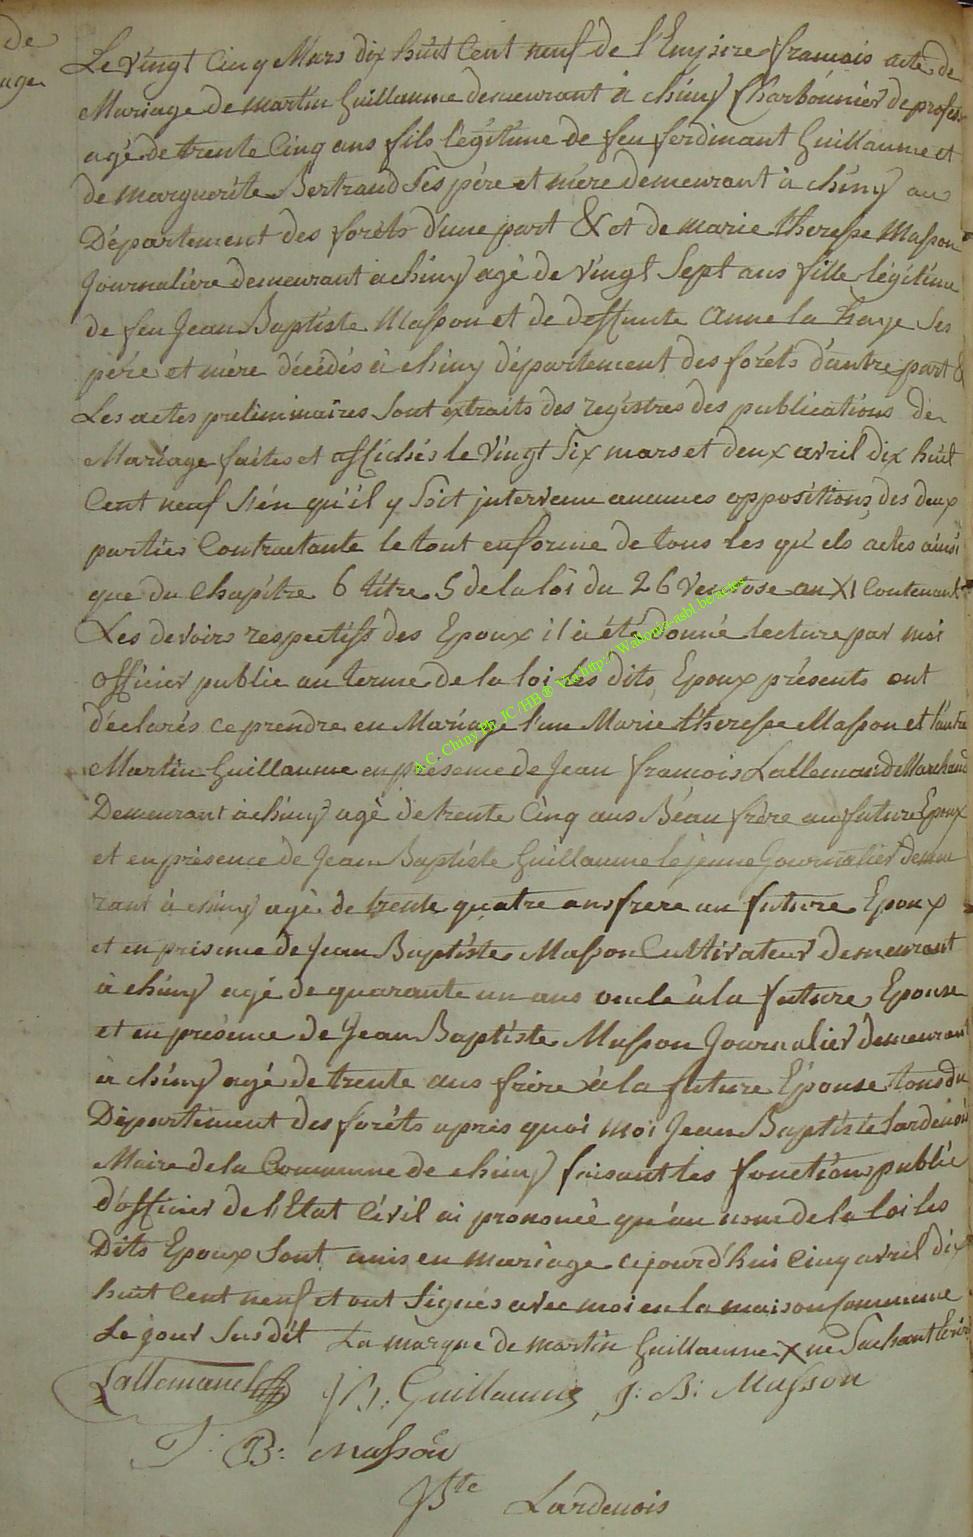 de
age
Le vingt Cinq Mars dix huit Cent neuf de l'Empire francois acte de
Mariage de martin Guillaume demeurant à chiny Charbonnier de profess
agé de trente Cinq ans fils légitime de feu ferdinant Guillaume et
de marguerite Bertrand Ses pére et mére demeurant à chiny au
Département des foréts d'une part & et de marie theresse Masson
Journaliére demeurant a chiny agé de vingt Sept ans fille légitime
de feu Jean Baptiste Masson et de deffunte Anne la haye Ses
pére et mére décédés à chiny département des foréts d'autre part &
Les actes preliminaires Sont extraits des registres des publications de
Mariage faites et affichés le vingt Six mars et deux avril dix huit
Cent neuf S'en qu'il y Soit intervenu aucunes oppositions des deux
parties Contractante le tout en forme de tous les qu'els actes ainsi
que du Chapitre 6 titre 5 de la loi du 26 Ventose an XI Contenant
Les devoirs respectifs des Epoux il a été donné lecture par moi
officier public au terme de la loi les dits Epoux présents ont
déclarés ce prendre en Mariage l'un Marie therésse Masson et l'autre
Martin Guillaume en présence de Jean francois Lallemand Marchand
Demeurant à chiny agé de trente Cinq ans Béau frére au future Epoux
et en présence de Jean Baptiste Guillaume le jeune Journalier demeu
rant à chiny agé de trente quatre ans frere au future Epoux
et en présence de Jean Baptiste Masson Cultivateur demeurant
à chiny agé de quarante un ans oncle à la future Epouse
et en présence de Jean Baptiste Masson Journalier demeurant
à chiny agé de trente ans frére à la future Epouse tous du
Département des foréts apres quoi moi Jean Baptiste Lardenois
Maire de la Commune de chiny faisant les fonctions public
d'officier de l'Etat Civil ai prononcé qu'au nom de la loi les
Dits Epoux Sont unis en mariage cejourd'hui Cinq avril dix
huit Cent neuf et ont Signés avec moi en la maison Commune
Le jour Susdit La marque de martin Guillaume X ne Sachant Ecrire
Lallemand J B: Guillaume J: B: Masson
J: B: Masson
JBte Lardenois
A.C. Chiny Ph. JC/HB® Via http://Wallonia-asbl.be/actes